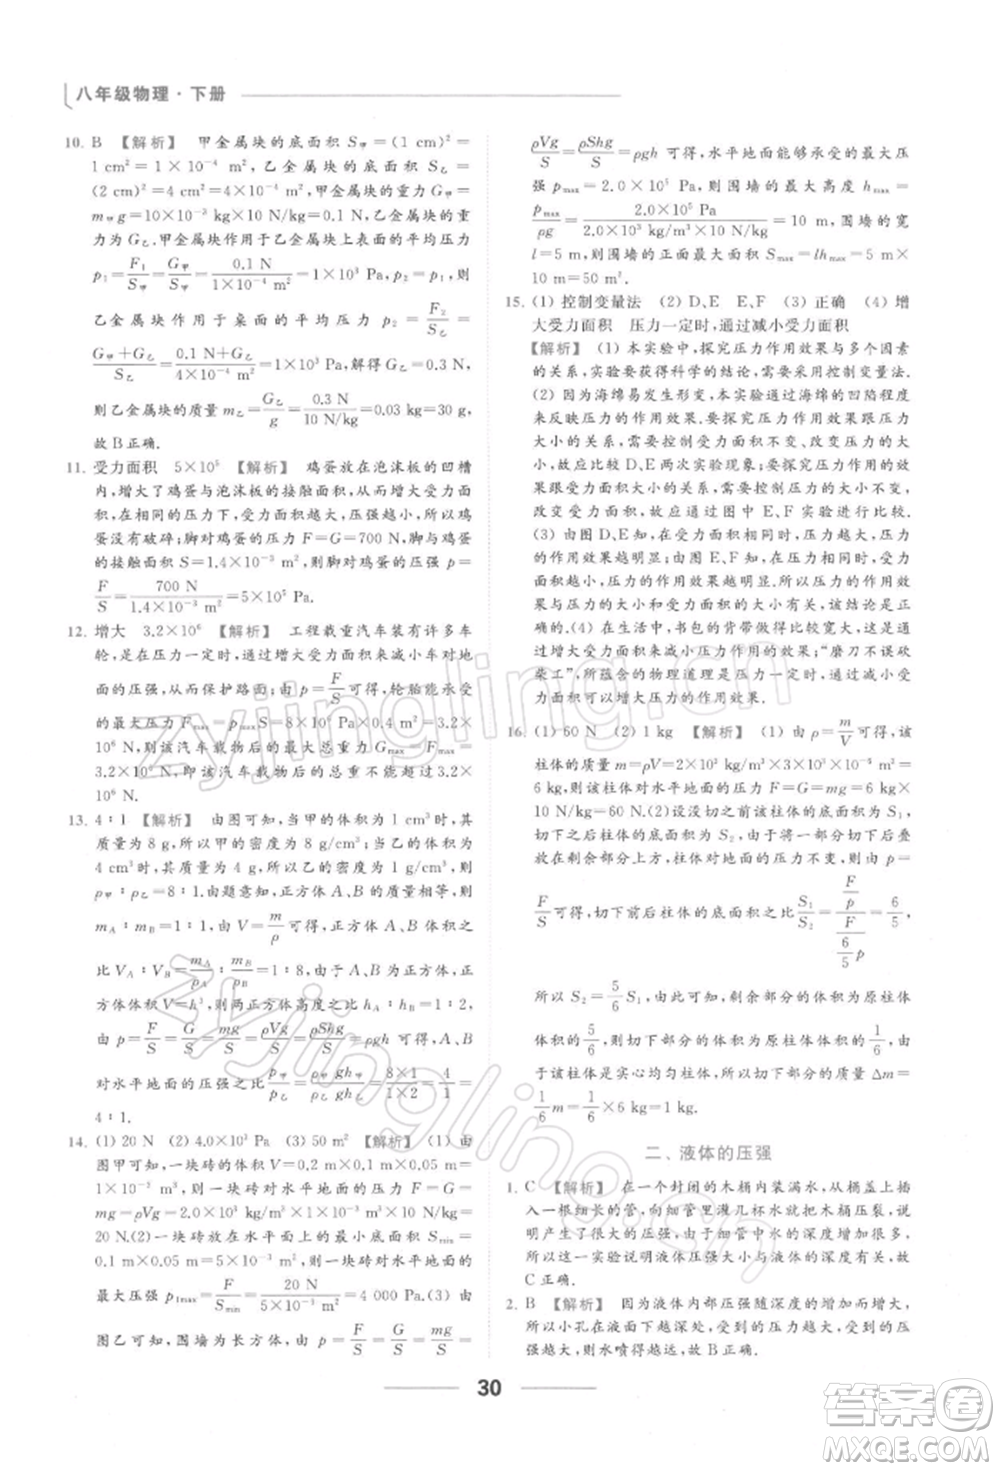 八年级物理·下册
10. B 【解析】 甲金属块的底面积 S甲=(1 cm)²=
1 cm²=1×10⁻⁴ m²,乙金属块的底面积 S乙=
(2 cm)²=4 cm²=4×10⁻⁴ m²,甲金属块的重力 G甲=
m甲g=10×10⁻³ kg×10 N/kg=0.1 N,乙金属块的重
力为 G乙.甲金属块作用于乙金属块上表面的平均压力
p₁=F₁/S甲=G甲/S甲=0.1 N/(1×10⁻⁴ m²)=1×10³ Pa,p₂=p₁,则
乙金属块作用于桌面的平均压力 p₂=F₂/S乙=
(G甲+G乙)/S乙=(0.1 N+G乙)/(4×10⁻⁴ m²)=1×10³ Pa,解得 G乙=0.3 N,
则乙金属块的质量 m乙=G乙/g=0.3 N/(10 N/kg)=0.03 kg=30 g,
故 B 正确.
11. 受力面积 5×10⁵ 【解析】 鸡蛋放在泡沫板的凹槽
内,增大了鸡蛋与泡沫板的接触面积,从而增大受力面
积,在压力一定的情况下,受力面积越大,压强越小,所以鸡
蛋没有破碎;脚对鸡蛋的压力 F=G=700 N,脚与鸡
蛋的接触面积 S=1.4×10⁻³ m²,则脚对鸡蛋的压强 p=
F/S=700 N/(1.4×10⁻³ m²)=5×10⁵ Pa.
12. 增大 3.2×10⁶ 【解析】 工程载重汽车装有许多车
轮,是在压力一定时,通过增大受力面积来减小车对地
面的压强,从而保护路面;由 p=F/S可得,轮胎能承受
的最大压力 Fmax=pmaxS=8×10⁶ Pa×0.4 m²=3.2×
10⁶ N,则该汽车载物后的最大总重力 Gmax=Fmax=
3.2×10⁶ N,即该汽车载物后的总重不能超过 3.2×
10⁶ N.
13. 4∶1 【解析】 由图可知,当甲的体积为 1 cm³ 时,其
质量为 8 g,所以甲的密度为 8 g/cm³;当乙的体积为
4 cm³时,其质量为 4 g,所以乙的密度为 1 g/cm³,所以
ρ甲∶ρ乙=8∶1;由题意知,正方体 A、B 的质量相等,则
mA∶mB=1∶1,由 V=m/ρ可得,正方体 A、B 的体积之
比 VA∶VB=mA/ρA∶mB/ρB=1/8∶1/1=1∶8;因为 A、B 为正方体,正
方体体积 V=h³,则两正方体高度之比 hA∶hB=1∶2,
由 p=F/S=G/S=mg/S=ρVg/S=ρShg/S=ρgh 可得,A、B
对水平地面的压强之比 p甲/p乙=ρ甲ghA/ρ乙ghB=(8×1)/(1×2)=4/1=
4∶1.
14. (1) 20 N (2) 4.0×10³ Pa (3) 50 m² 【解析】 (1) 由
图甲可知,一块砖的体积 V=0.2 m×0.1 m×0.05 m=
1×10⁻³ m³,则一块砖对水平地面的压力 F=G=
mg=ρVg=2.0×10³ kg/m³×1×10⁻³ m³×10 N/kg=
20 N.(2)一块砖对水平地面的最小面积 Smin=
0.1 m×0.05 m=5×10⁻³ m²,则一块砖对水平地面的
最大压强 p1max=F/Smin=20 N/(5×10⁻³ m²)=4 000 Pa.(3) 由
图乙可知,围墙为长方体,由 p=F/S=G/S=mg/S=
ρVg/S=ρShg/S=ρgh 可得,水平地面能够承受的最大压
强 pmax=2.0×10⁵ Pa,则围墙的最大高度 hmax=
pmax/ρg=2.0×10⁵ Pa/(2.0×10³ kg/m³×10 N/kg)=10 m,围墙的宽
l=5 m,则围墙的最大面积 Smax=lhmax=5 m×
10 m=50 m².
15. (1) 控制变量法 (2) D、E E、F (3) 正确 (4) 增
大受力面积 压力一定时,通过减小受力面积
【解析】 (1) 本实验中,探究压力作用效果与多个因素
的关系,实验要获得科学的结论,需要采用控制变量法.
(2) 因为海绵易发生形变,实验中通过海绵的凹陷程度
来反映压力的作用效果.要探究压力的作用效果跟压力
大小的关系,需要控制受力面积不变、改变压力大小,所
以应比较图 D、E 两次实验现象;要探究压力的作用效
果跟受力面积大小的关系,要控制压力大小不变,
改变受力面积大小,故应通过图中 E、F 实验进行比较.
(3) 由图 D、E、F 可知,受力面积越小、压力越大,压力
的作用效果越明显;由图 E、F 可知,压力大小相同时,受
力面积越小,压力的作用效果越明显.所以,在压力和受
力面积都改变的情况下,也可以得出正确的实验结
论.(4) 在生活中,书包的背带做得比较宽大,是通过增
大受力面积来减小压力的作用效果;“磨刀不误砍
柴工”,所蕴含的物理道理是压力一定时,通过减小受
力面积来增大压力的作用效果.
16. (1) 60 N (2) 1 kg 【解析】 (1) 由 ρ=m/V可得,该
柱体的质量 m=ρV=2×10³ kg/m³×3×10⁻³ m³=
6 kg,该柱体对水平地面的压力 F=G=mg=6 kg×
10 N/kg=60 N.(2)设没切之前该柱体的底面积为 S₁,
切下之后柱体的底面积为 S₂,由于将一部分切下后叠
放在剩余部分上方,柱体对地面的压力不变,则由 p=
F/S可得,切下前后柱体的底面积之比为 S₁/S₂=(F/p)/(F/(6/5 p))=6/5,
所以 S₂=5/6 S₁,由此可知,剩余部分的体积为原柱体
体积的5/6,所以切下部分的体积为原柱体体积的1/6,
由于该柱体是实心均匀柱体,则切下部分的质量 Δm=
1/6 m=1/6×6 kg=1 kg.
二、液体的压强
1. C 【解析】 在一个封闭的木桶内装满水,从桶盖上插
入一根细长的管,向细管里灌几杯水就把木桶压裂,说
明产生了很大的压强,由于细管中水的质量很小,但深度很大,
所以这一实验说明液体压强大小与液体的深度有关,故
C 正确.
2. B 【解析】 因为液体内部压强随深度的增加而增大,
所以小孔在水下越深处,受到的压力越大,受到的压强
越大,则水喷得越远,故 B 正确.
30
zyjingling.cn
zyjingling.cn
答案圈
MXQE.COM